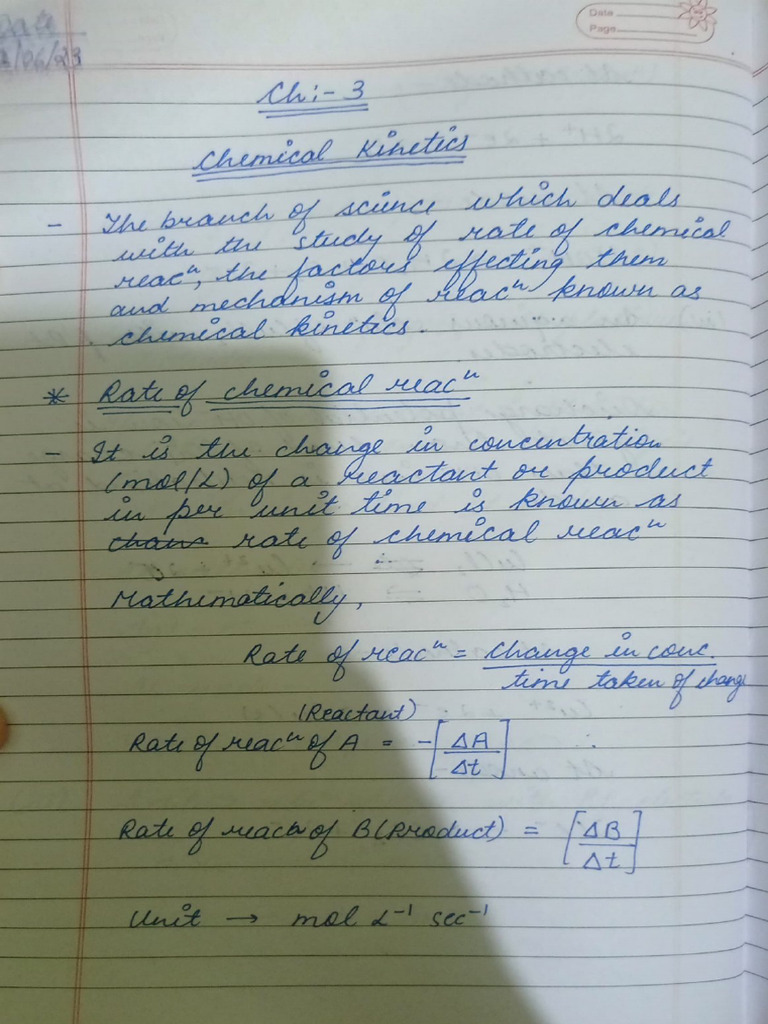 Date
Page
Date
/06/23
Ch:- 3
Chemical Kinetics
- The branch of science which deals
with the study of rate of chemical
reacⁿ, the factors effecting them
and mechanism of reacⁿ known as
chemical kinetics.
* Rate of chemical reacⁿ
- It is the change in concentration
(mol/L) of a reactant or product
in per unit time is known as
rate of chemical reacⁿ
Mathematically,
Rate of reacⁿ = Change in conc.
time taken of change
(Reactant)
Rate of reacⁿ of A = -[ΔA/Δt]
Rate of reacn of B (Product) = [ΔB/Δt]
Unit → mol L⁻¹ sec⁻¹